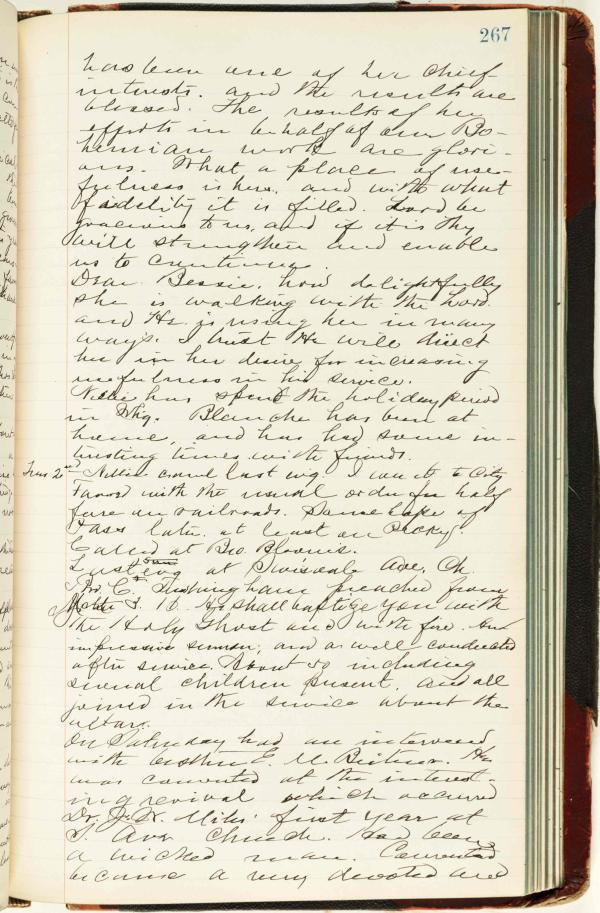 267
has been one of her chief
interests, and the results are
blessed. The results of her
efforts in behalf of our Bo-
hemian work are glori-
ous. What a place of use-
fulness is hers, and with what
fidelity it is filled. Lord be
gracious to us, and if it is thy
will strengthen and enable
us to continue.
Dear Bessie, how delightfully
she is walking with the Lord.
and He is using her in many
ways. I trust He will direct
her in her desire for increasing
usefulness in his service.
Nellie has spent the holiday period
in . Blanche has been at
home, and has had some in-
teresting times with friends.
2nd Nellie came last evg. I went to City
Favored with the usual order for half
fare on railroads. Some of
Pass late, at least on
Called at Bro.
Last evg at Ave. Ch.
Bro. C. preached from
He shall baptize you with
the Holy Ghost and with fire. An
impressive sermon, and as well conducted
after service. About 50 including
several children present, and all
joined in the service about the
altar.
On Saturday had an interview
with E. M. He
was converted at the interest-
ing revival which occurred
Dr. J. W. Miles' first year at
Ave Church. Had been
a wicked man. Converted
became a very devoted and